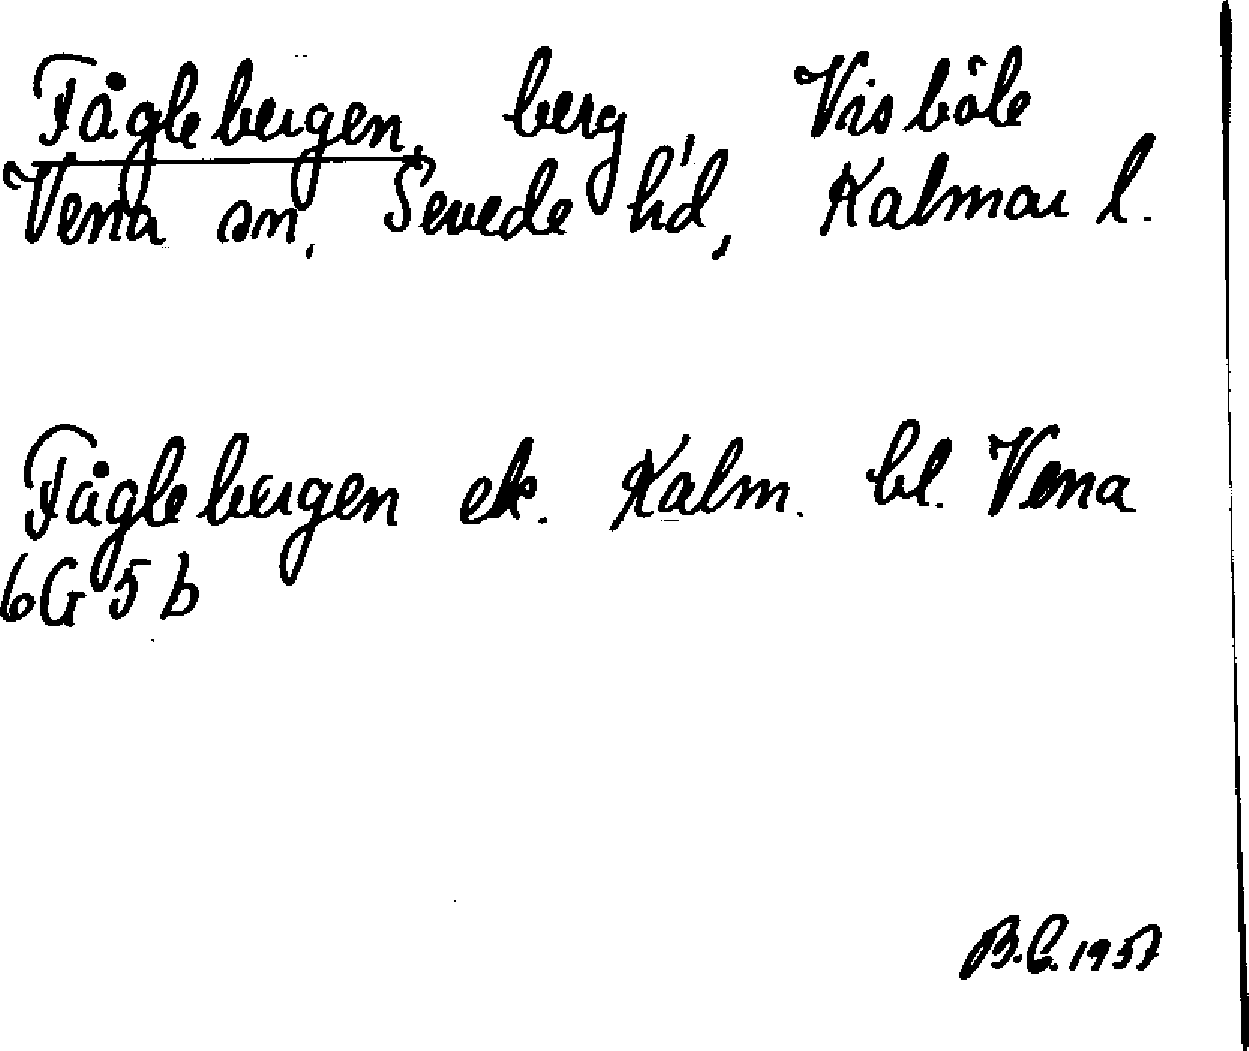 Fåglebergen, berg, Visböle
Vena sn. Sevede h'd, Kalmar l.
Fåglebergen ek. Kalm. bl. Vena
6G 5 b
B.C. 1957